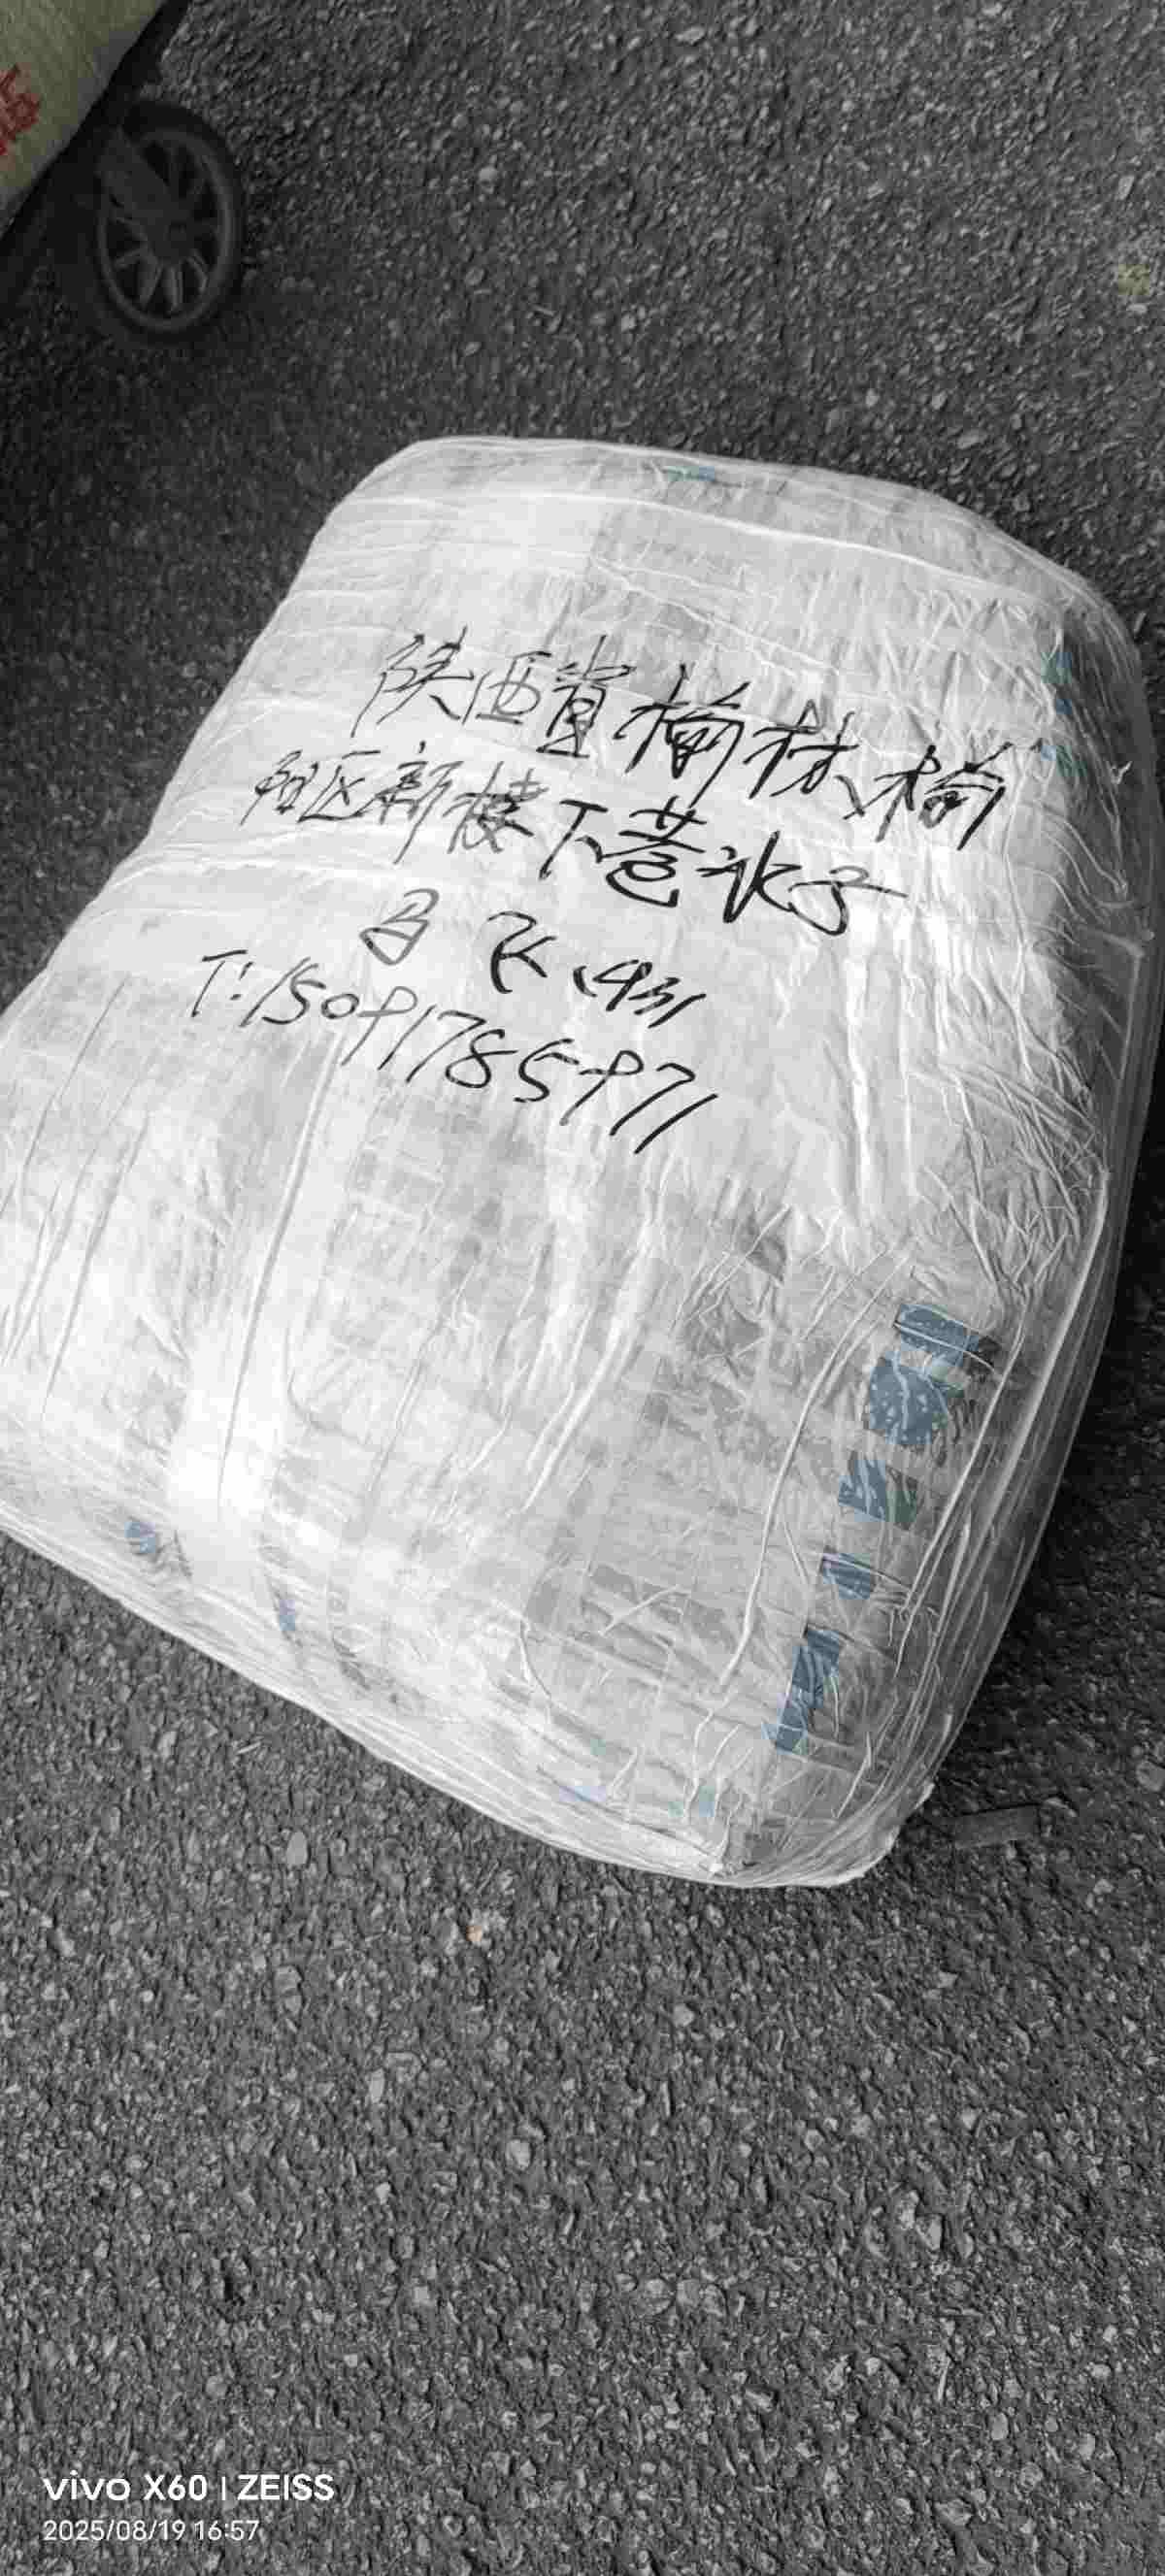 陕西省榆林、榆
阳区新楼下巷水子
马飞、收
T:15091785971
vivo X60 | ZEISS
2025/08/19 16:57